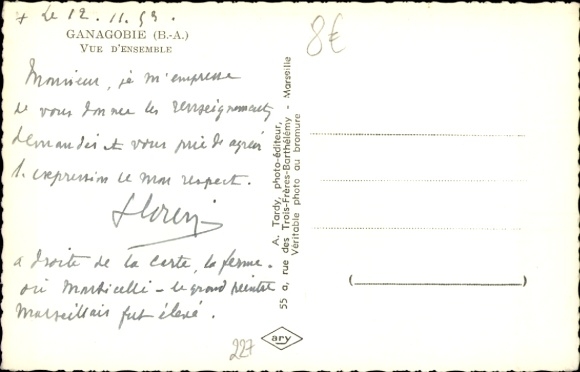 + Le 12.11.53.
GANAGOBIE (B.-A.)
VUE D'ENSEMBLE
8€
Monsieur, je m'empresse
de vous donner les renseignements
demandés et vous prie de agréer
l'expression de mon respect.
a droite de la carte, la ferme.
où Monticelli - le grand peintre
Marseillais fut élevé.
A. Tardy, photo-éditeur,
55 a, rue des Trois-Frères-Barthélémy - Marseille
Véritable photo au bromure
227
ary